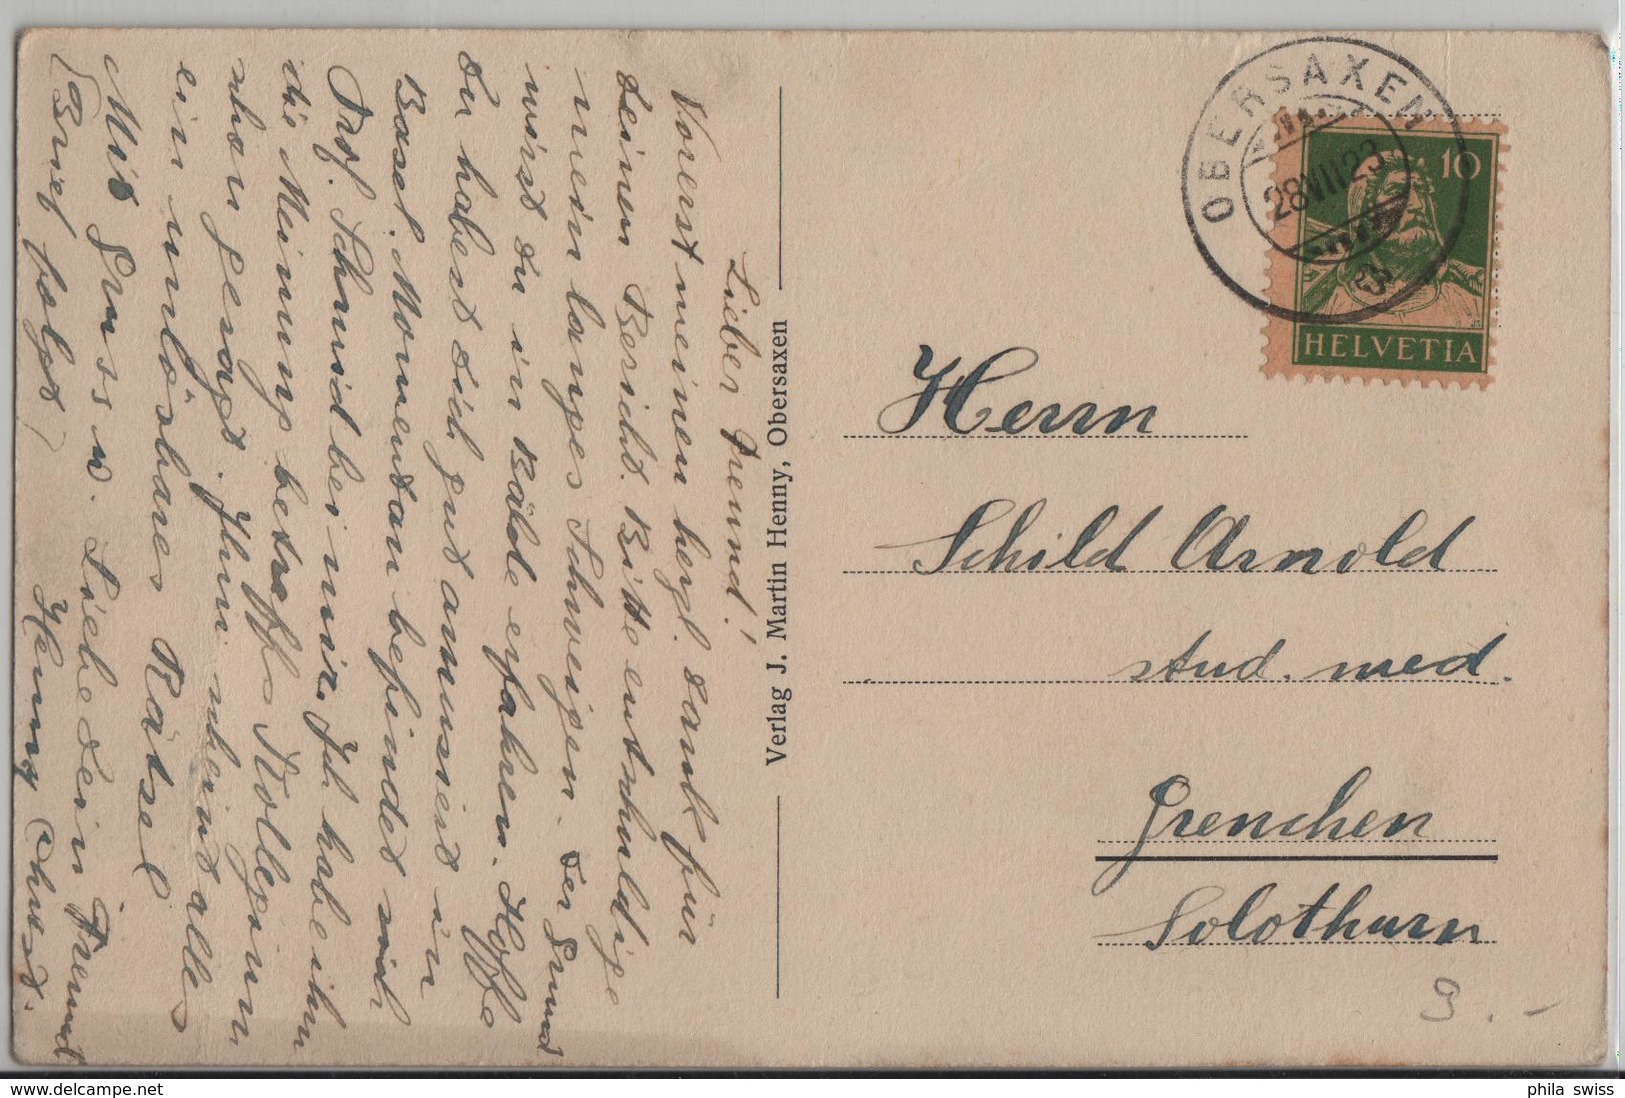 Lieber Freund!
Vorerst meinen herzl. Dank für
deinen Bericht. Bitte entschuldige
mein langes Schweigen. Der Grund
wirst du in Bälde erfahren. Hoffe
du habest dich gut amusiert in
Basel. Momentan befindet sich
Prof. Schmid bei mir. Ich habe ihm
die Meinung betreffs Kollegium
schon gesagt. Ihm scheint alles
ein unlösbares Rätsel
Mit Gruss u. Liebe dein Freund
(Brief folgt) Henny
Verlag J. Martin Henny, Obersaxen
OBERSAXEN
28 VII 23
10
HELVETIA
Herrn
Schild Arnold
stud. med.
Grenchen
Solothurn
9.-
phila_swiss